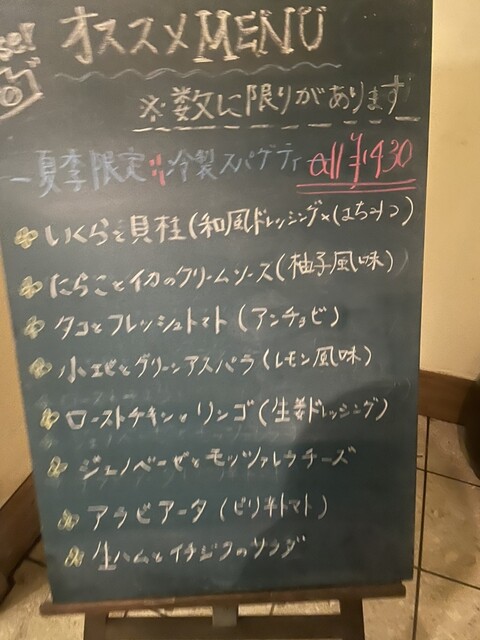 オススメMENU
※数に限りがあります
夏季限定!! 冷製スパゲティ all ¥1430
いくらと貝柱(和風ドレッシング×はちみつ)
たらことイカのクリームソース(柚子風味)
タコとフレッシュトマト(アンチョビ)
小エビとグリーンアスパラ(レモン風味)
ローストチキンとリンゴ(生姜ドレッシング)
ジェノベーゼとモッツァレラチーズ
アラビアータ(ピリ辛トマト)
生ハムとイチジクのサラダ